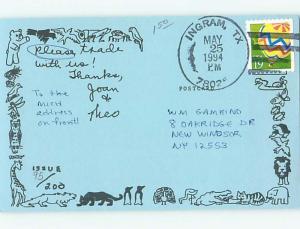 1.50
please trade
with us!
Thanks,
Joan
&
Theo
To the
MICH
address
on front!
ISSUE
95/
200
INGRAM, TX
MAY
25
1994
PM
POSTC
19
WM GAMBINO
8 OAKRIDGE DR
NEW WINDSOR,
NY 12553